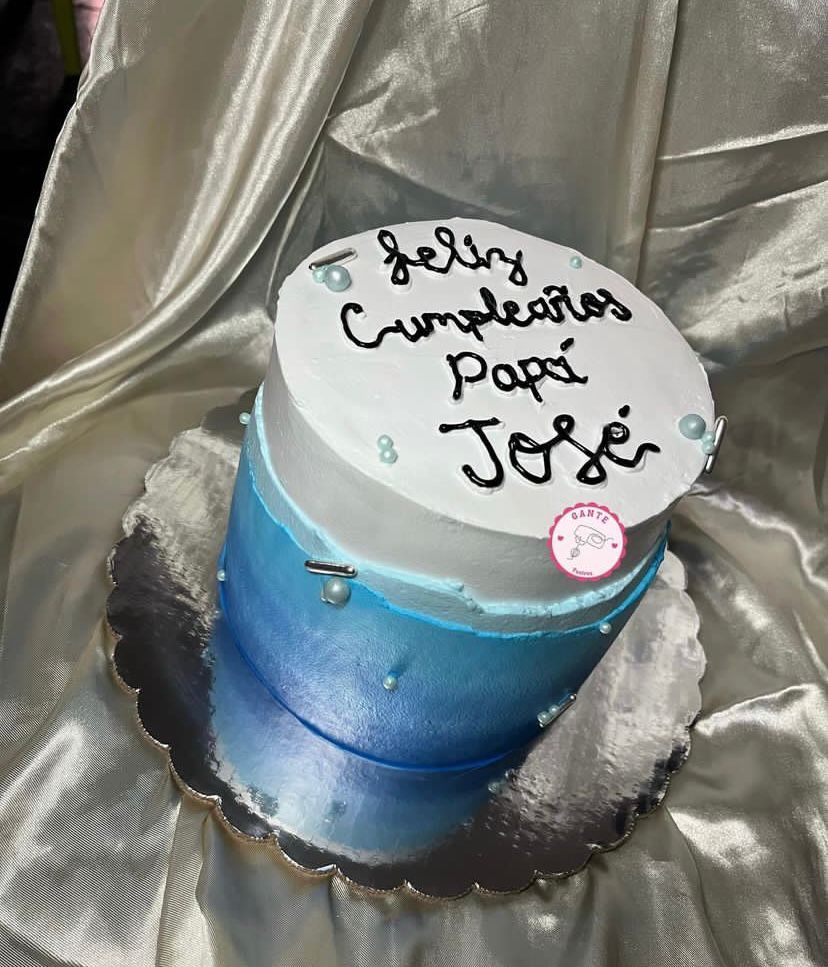 feliz
Cumpleaños
Papá
José
GANTE
Postres